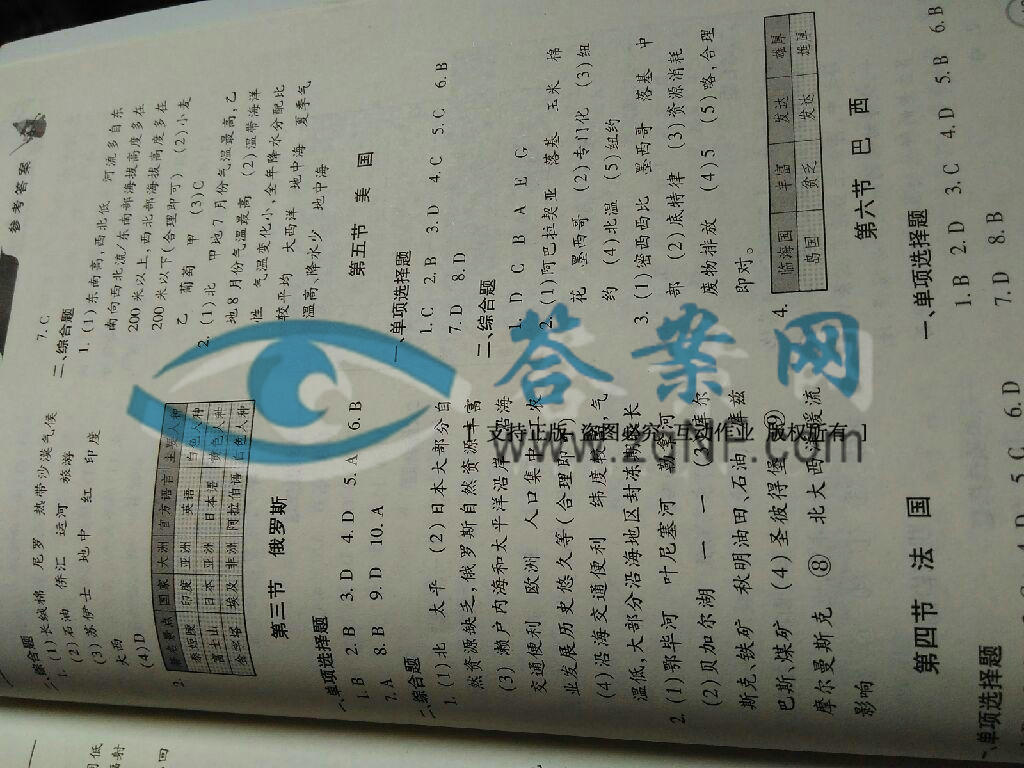 参考答案
二、综合题
1. (1)长绒棉 尼罗 热带沙漠气候
(2)石油 侨汇 运河 旅游
(3)苏伊士 地中 红 印度
大西
(4)D
2.
著名景点 国家 大洲 官方语言 主要人种
泰姬陵 印度 亚洲 英语 白色人种
富士山 日本 亚洲 日本语 黄色人种
金字塔 埃及 非洲 阿拉伯语 白色人种
第三节 俄罗斯
一、单项选择题
1. B 2. B 3. D 4. D 5. A 6. B
7. A 8. B 9. D 10. A
二、综合题
1. (1)北 太平 (2)日本大部分自
然资源缺乏,俄罗斯自然资源丰富
(3)濑户内海和太平洋沿岸
交通便利 欧洲 人口集中 农
业发展历史悠久等(合理即可)
(4)沿海交通便利 纬度 气
温低,大部分沿海地区封冻期 长
2. (1)鄂毕河 叶尼塞河 勒拿河
(2)贝加尔湖 一 一 (3)摩尔
斯克 铁矿 秋明油田、石油
巴斯、煤矿 (4)圣彼得堡 ⑨
摩尔曼斯克 ⑧ 北大西 暖流
影响
第四节 法 国
一、单项选择题
5. C 6. D
7. C
二、综合题
1. (1)东南高,西北低 河流多自东
南向西北流/东南部海拔高度多在
200米以上,西北部海拔高度多在
200米以下(合理即可) (2)小麦
乙 葡萄 甲 (3)C
2. (1)北 甲地7月份气温最高,乙
地8月份气温最高 (2)温带海洋
性 气温变化小、全年降水分配比
较平均 大西洋 地中海 夏季气
温高、降水少 地中海
第五节 美 国
一、单项选择题
1. C 2. B 3. D 4. C 5. C 6. B
7. D 8. D
二、综合题
1. D C B A E G
2. (1)阿巴拉契亚 落基 玉米 棉
花 墨西哥 (2)专门化 (3)纽
约 (4)北温 (5)纽约
3. (1)密西西比 墨西哥 落基 中
部 (2)底特律 (3)资源消耗
废物排放 (4)5 (5)略,合理
即对。
4.
临海国 丰富 发达 雄厚
岛国 贫乏 发达 雄厚
第六节 巴 西
一、单项选择题
1. B 2. D 3. C 4. D 5. B 6. B
7. D 8. B
答案网